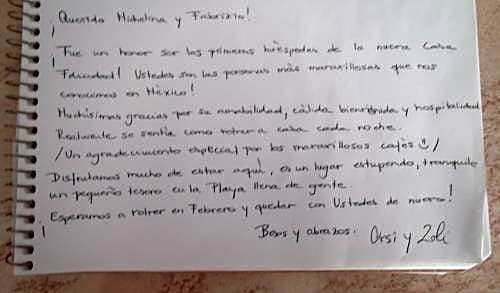 ¡Querido Michelina y Fabrizio!
¡Fue un honor ser los primeros huéspedes de la nueva Casa
Felicidad! Ustedes son las personas más maravillosas que nos
conocimos en México!
Muchísimas gracias por su amabilidad, cálida bienvenida y hospitalidad.
Realmente se sentía como volver a casa cada noche.
/Un agradecimiento especial por los maravillosos cafés ☺/
Disfrutamos mucho de estar aquí, es un lugar estupendo, tranquilo
un pequeño tesoro en la Playa llena de gente.
¡Esperamos a volver en Febrero y quedar con Ustedes de nuevo!
Besos y abrazos. Orsi y Zoli